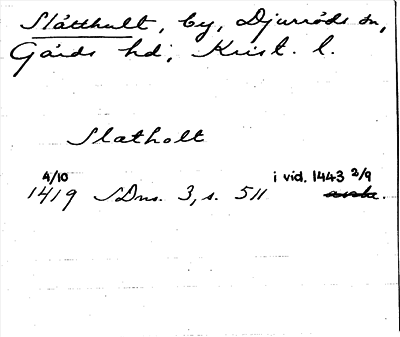 Slätthult, by, Djurröds sn,
Gärds hd, Krist. l.
Slatholt
4/10 i vid. 1443 2/9
1419 SDns. 3, s. 511